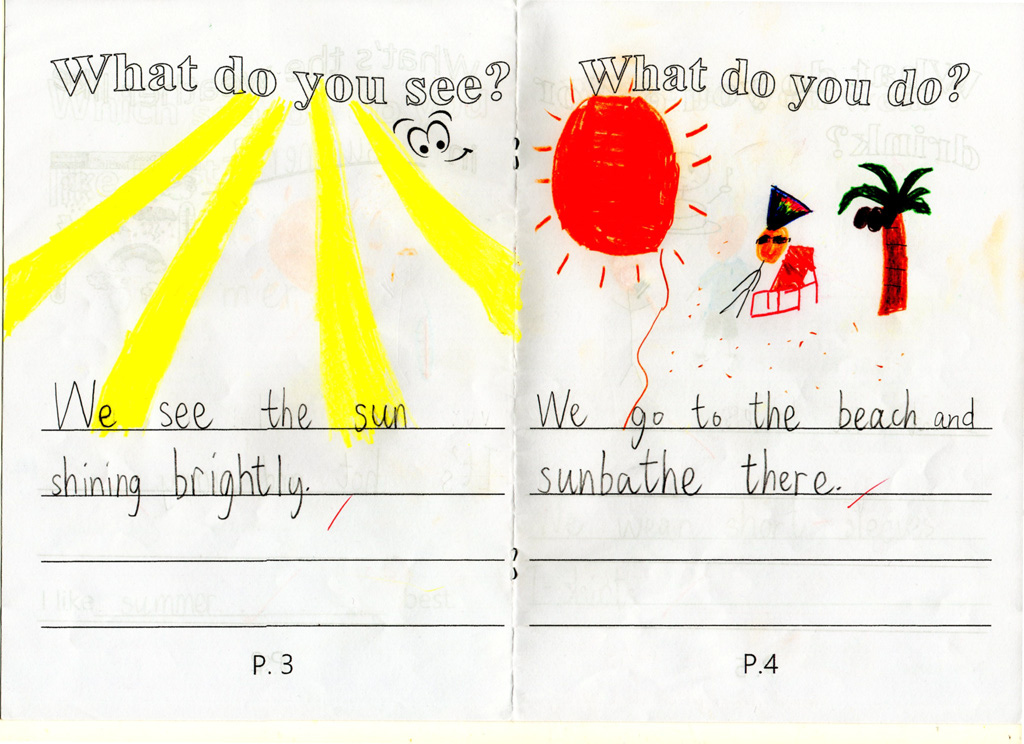 What do you see?
We see the sun
shining brightly.
P. 3
What do you do?
We go to the beach and
sunbathe there.
P.4